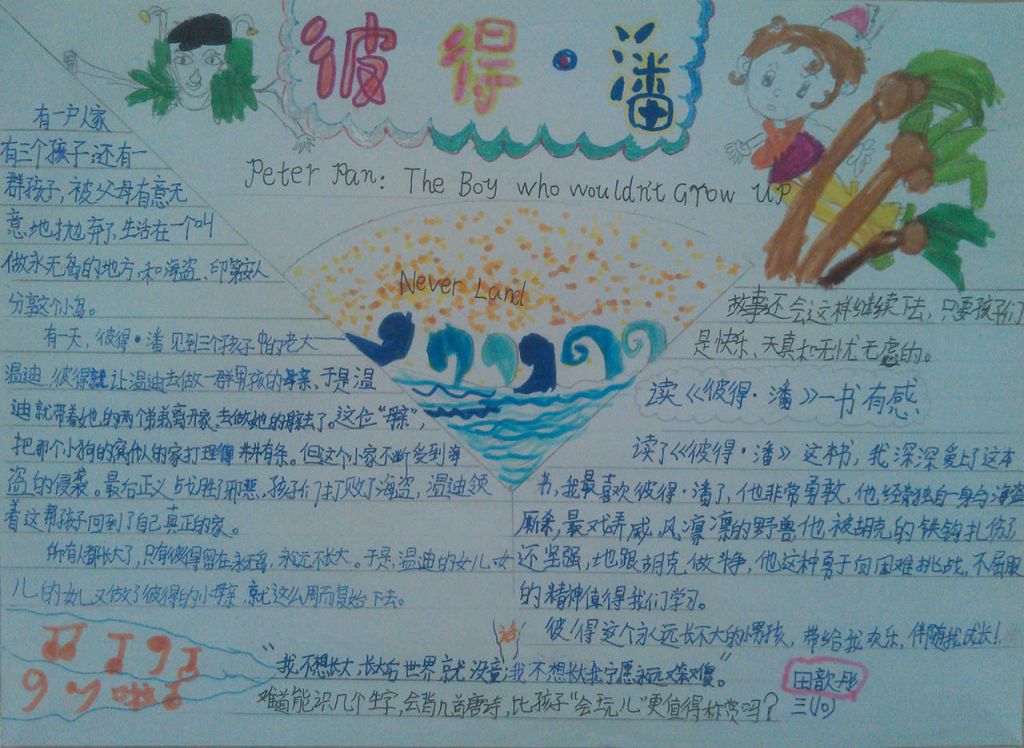 彼得·潘
Peter Pan: The Boy who wouldn't Grow Up
Never Land
有一户人家
有三个孩子,还有一
群孩子,被父母有意无
意地抛弃了,生活在一个叫
做永无岛的地方,和海盗、印第安人
分享这个小岛。
有一天,彼得·潘见到三个孩子中的老大
温迪,彼得就让温迪去做一群男孩的母亲,于是温
迪就带着她的两个弟弟离开家,去做她的母亲去了。这位“母亲”,
把那个小狗的窝似的家打理得井井有条。但这个小家不断受到海
盗的侵袭。最后正义战胜了邪恶,孩子们打败了海盗,温迪领
着这帮孩子回到了自己真正的家。
所有人都长大了,只有彼得留在永无岛,永远不长大。于是,温迪的女儿、女
儿的女儿又做了彼得的小母亲,就这么周而复始下去。
故事还会这样继续下去,只要孩子们
是快乐、天真和无忧无虑的。
读《彼得·潘》一书有感
读了《彼得·潘》这本书,我深深爱上了这本
书,我最喜欢彼得·潘了,他非常勇敢,他经常独自一身与海盗
厮杀,最戏弄威风凛凛的野兽他被胡克的铁钩扎伤了
还坚强地跟胡克做斗争,他这种勇于向困难挑战,不屈服
的精神值得我们学习。
彼得这个永远长不大的男孩,带给我欢乐,伴随我成长!
“我不想长大,长大后世界就没童话我不想长大我宁愿永远又笨又傻。”
难道能识几个生字,会背几首唐诗,比孩子“会玩儿”更值得称赏吗?
田歆彤
三(10)